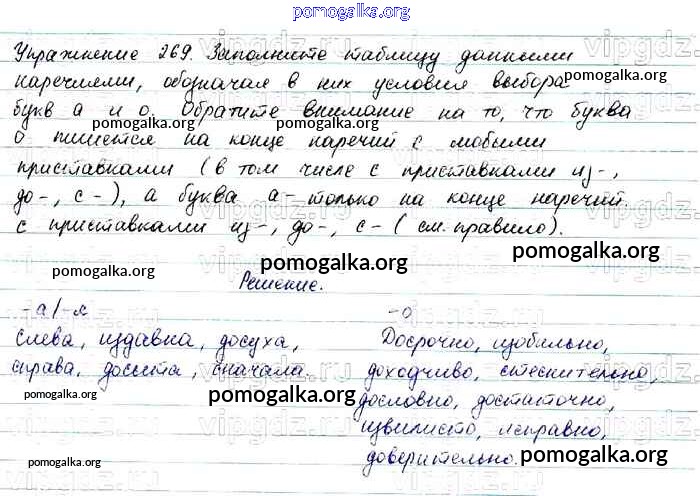 pomogalka.org
Упражнение 269. Заполните таблицу данными
наречиями, обозначая в них условия выбора
pomogalka.org
букв а и о. Обратите внимание на то, что буква
pomogalka.org
pomogalka.org
о пишется на конце наречий с любыми
приставками (в том числе с приставками из-,
до-, с-), а буква а - только на конце наречий
с приставками из-, до-, с- (см. правило).
pomogalka.org
pomogalka.org
Решение.
-а/-я
-о
Слева, издавна, досуха,
Досрочно, изобильно,
справа, досыта, сначала.
доходчиво, стеснительно,
pomogalka.org
pomogalka.org
pomogalka.org
дословно, достаточно,
извилисто, исправно,
pomogalka.org
доверительно.
pomogalka.org
vipgdz.ru